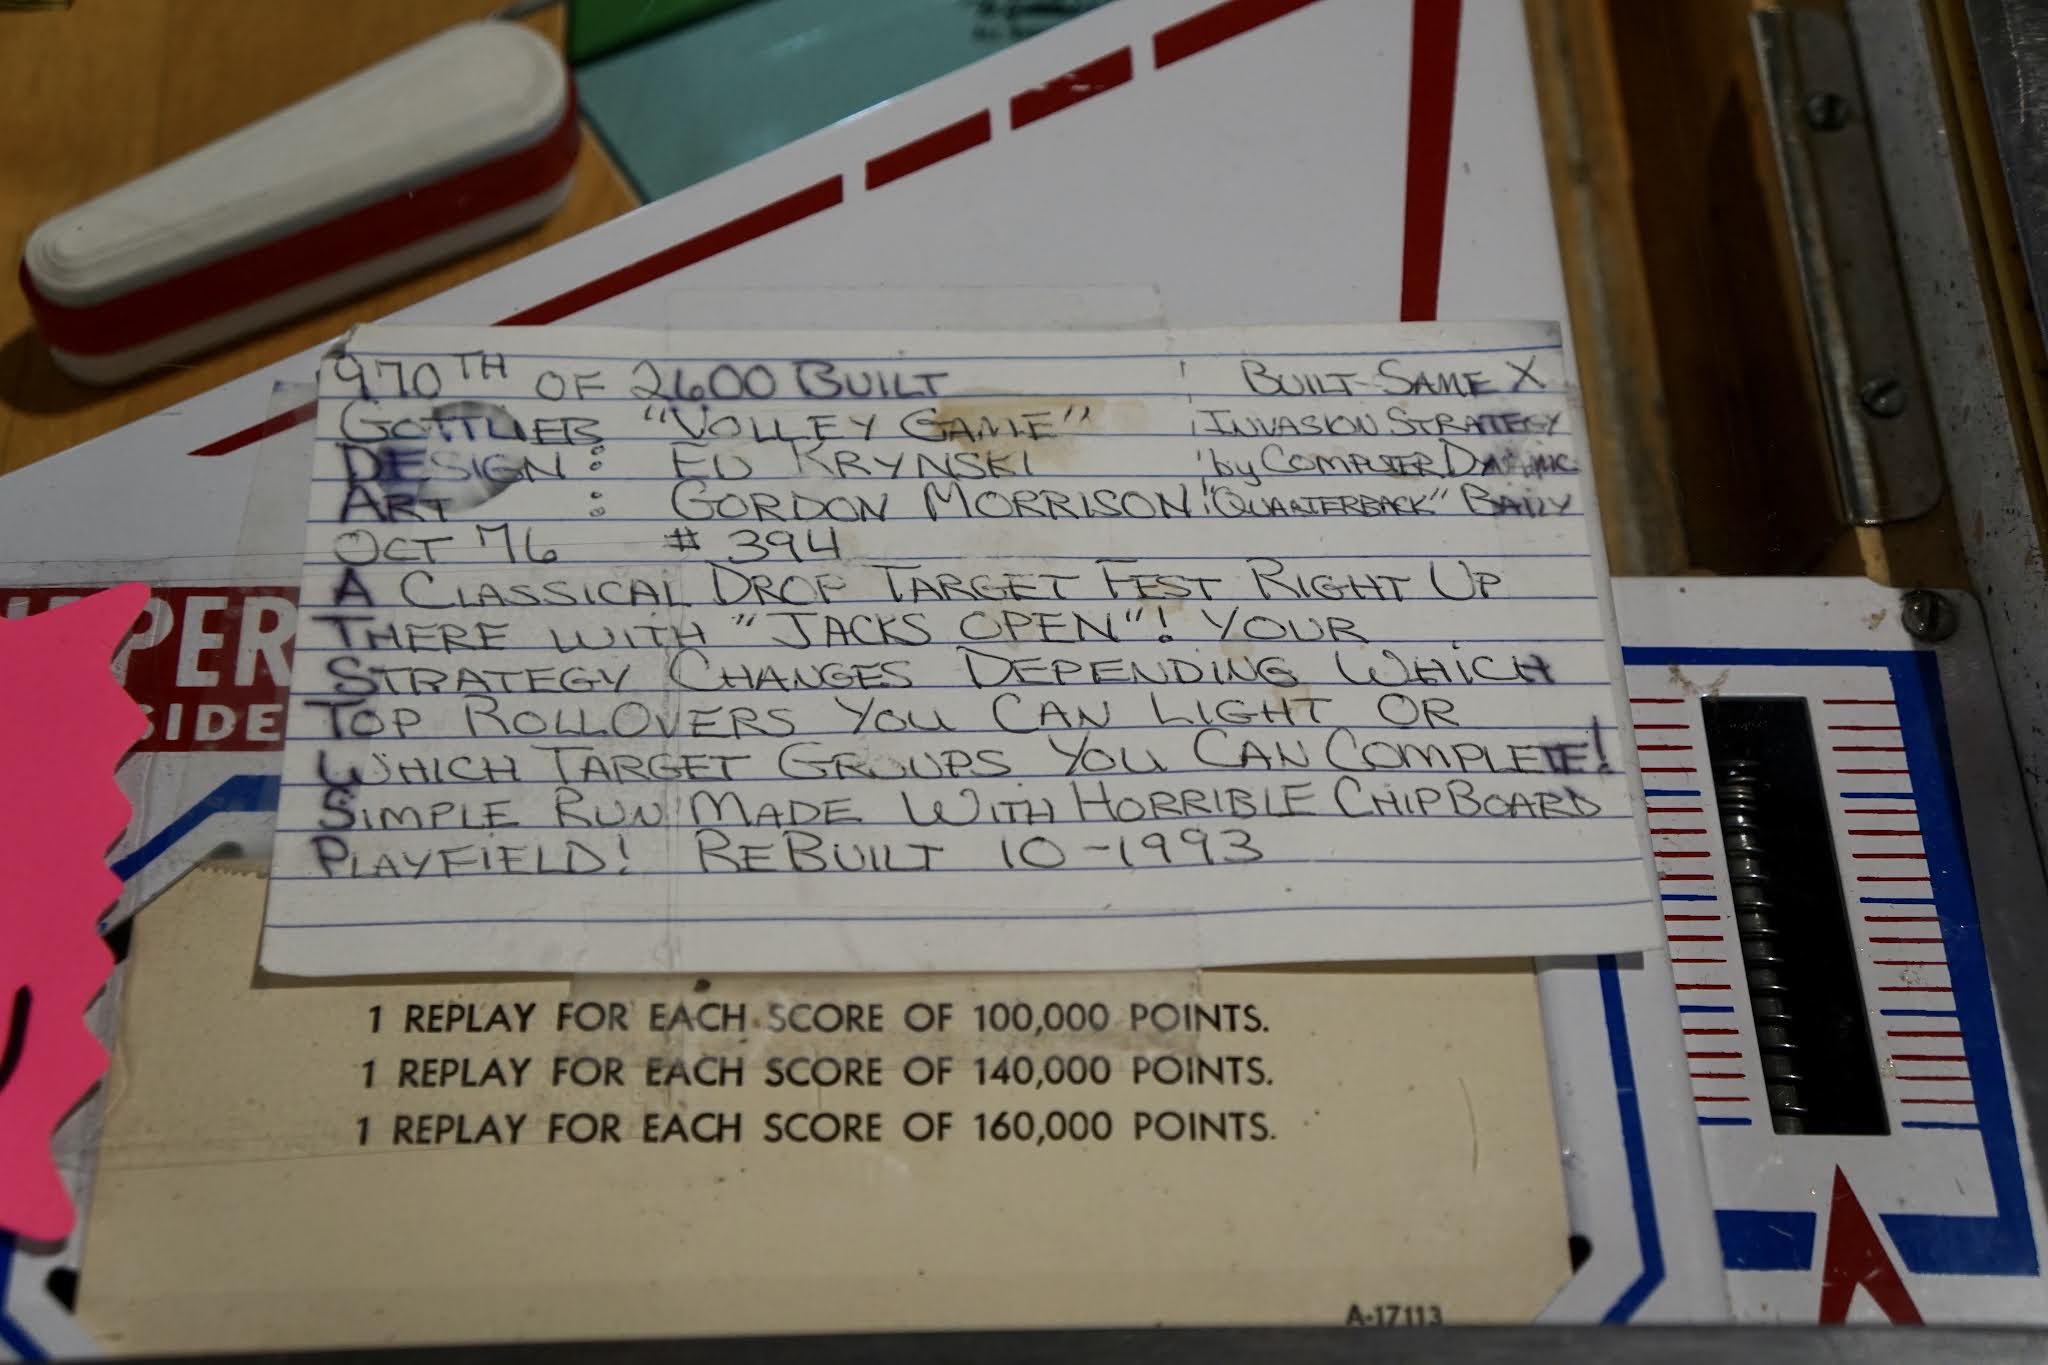 970TH OF 2600 BUILT
GOTTLIEB "VOLLEY GAME"
DESIGN : ED KRYNSKI
ART : GORDON MORRISON
OCT 76 # 394
A CLASSICAL DROP TARGET FEST RIGHT UP
THERE WITH "JACKS OPEN"! YOUR
STRATEGY CHANGES DEPENDING WHICH
TOP ROLLOVERS YOU CAN LIGHT OR
WHICH TARGET GROUPS YOU CAN COMPLETE!
SIMPLE RUN MADE WITH HORRIBLE CHIPBOARD
PLAYFIELD! REBUILT 10-1993
BUILT SAME X
INVASION STRATEGY
by COMPUTER DYNAMIC
"QUARTERBACK" BALLY
PER
SIDE
1 REPLAY FOR EACH SCORE OF 100,000 POINTS.
1 REPLAY FOR EACH SCORE OF 140,000 POINTS.
1 REPLAY FOR EACH SCORE OF 160,000 POINTS.
A-17113